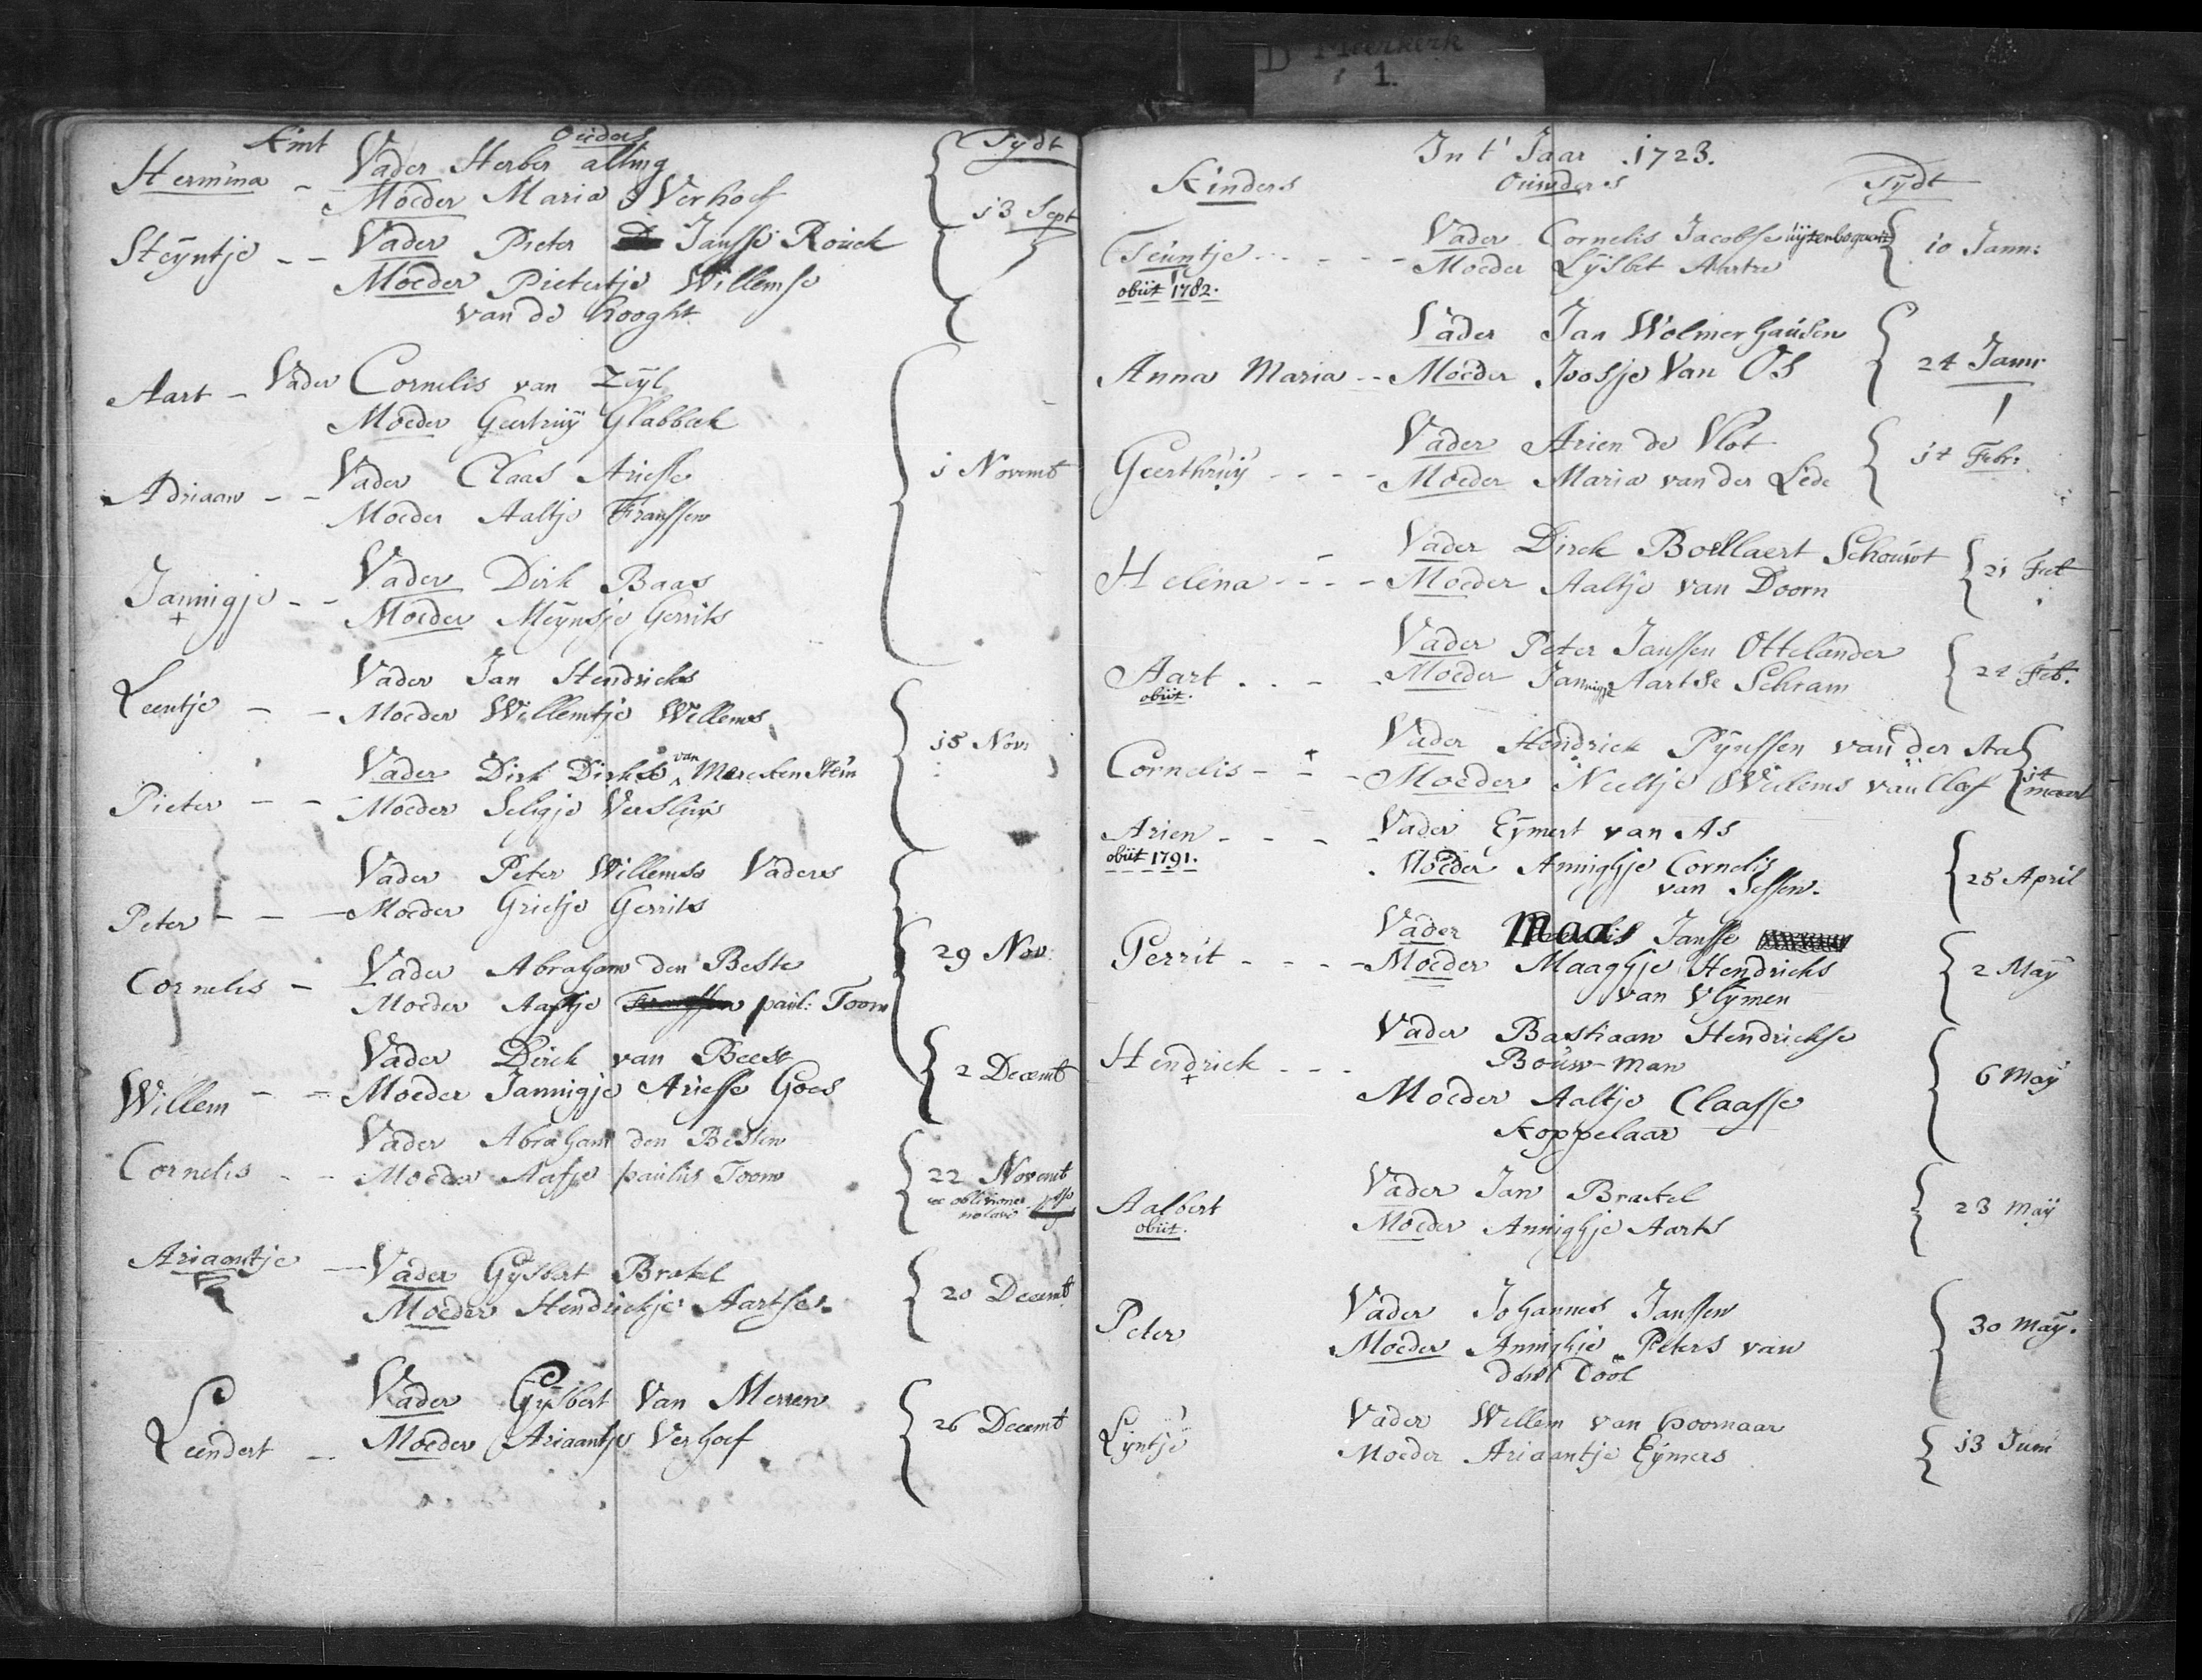 D Meerkerk
1.
Kint Ouders Tydt
Hermina - Vader Herber alting
Moeder Maria Verhoef
13 Sept
Steÿntje - - Vader Pieter Janssе Rouck
Moeder Pietertje Willemse
van de hooght
Aart - Vader Cornelis van Zÿl
Moeder Geertruÿ Glabbeek
Adriaan - - Vader Claas Ariesse
Moeder Aaltje Franssen
1 Novemb
Jannigje - - Vader Dirk Baas
+
Moeder Meÿnsje Gerrits
Leentje - - Vader Jan Hendricks
Moeder Willemtje Willems
15 Nov:
Pieter - - Vader Dirk Dirkse van Merckensteÿn
Moeder Seligje Verslúÿs
Peter - - - Vader Peter Willemse Vaders
Moeder Grietje Gerrits
29 Nov:
Cornelis - Vader Abraham den Beste
Moeder Aafje Franssen paul: Toom
Willem - - Vader Dirck van Beest
Moeder Jannigje Ariesse Goes
2 Decemb
Cornelis - - Vader Abraham den Besten
Moeder Aafje paulus Toom
22 Novemb
ex oblivione
Ariaantje - Vader Gÿsbert Brakel
Moeder Hendrickje Aartses.
20 Decemb
Leendert - - Vader Gÿsbert Van Merren
Moeder Ariaantje Verhoef
26 Decemb
In t' Jaar .1723.
Kinders Ouders Tÿdt
Teuntje - - - - - Vader Cornelis Jacobse uÿtenbogaart
obiit 1782.
Moeder Lÿsbet Aertse
10 Jann:
Vader Jan Wolmerhausen
Anna Maria - - Moeder Joosje Van Os
24 Jann:
Geerthruÿ - - - - Vader Arien de Vlot
Moeder Maria van der Lede
14 Febr:
Helena - - - - Vader Dirck Boellaert Schouwt
Moeder Aaltje van Doorn
21 Feb
Aart - - - Vader Peter Janssen Ottelander
obiit.
Moeder Jannigje Aartse Schram
24 Feb.
Cornelis - - - Vader Hendrick Pÿnssen van der Aa
+
Moeder Neeltje Weilems van Cleef
14 maart
Arien - - - - Vader Eÿmert van As
obiit 1791.
Moeder Annighje Cornelis
van Sessen.
25 April
Gerrit - - - - Vader Maas Jansse
Moeder Maaghje Hendricks
van Vlÿmen
2 Maÿ
Hendrick - - - Vader Bastiaan Hendrickse
+
Bouw-man
Moeder Aaltje Claasse
Koppelaar
6 Maÿ
Aalbert Vader Jan Brakel
obiit.
Moeder Annighje Aarts
23 Maÿ
Peter Vader Johannes Janssen
Moeder Annighje Peters van
Tööl
30 Maÿ.
Lÿntje Vader Willem van hoornaar
Moeder Ariaantje Eÿmers
13 Juni